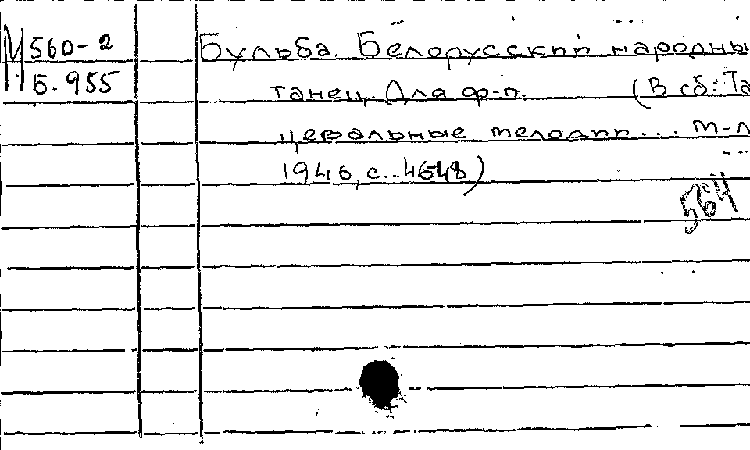 М 560-2
Б-955
Бульба. Белорусский народны
танец. Для ф-п. (В сб.: Та
цевальные мелодии... М-Л
1946, с. 46-48)
564